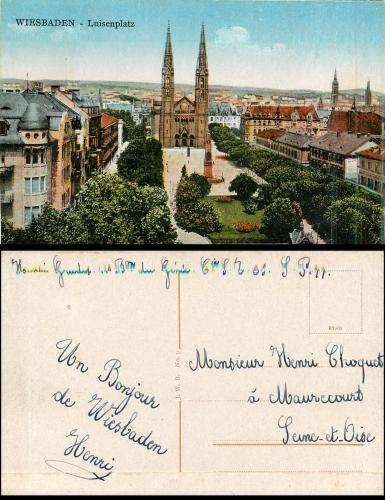 WIESBADEN - Luisenplatz
Bon du Génie. Cie S. P. 77.
Un Bonjour
de Wiesbaden
Henri
J. W. B. No. 9
Monsieur Henri Choquet
à Maurecourt
Seine-et-Oise